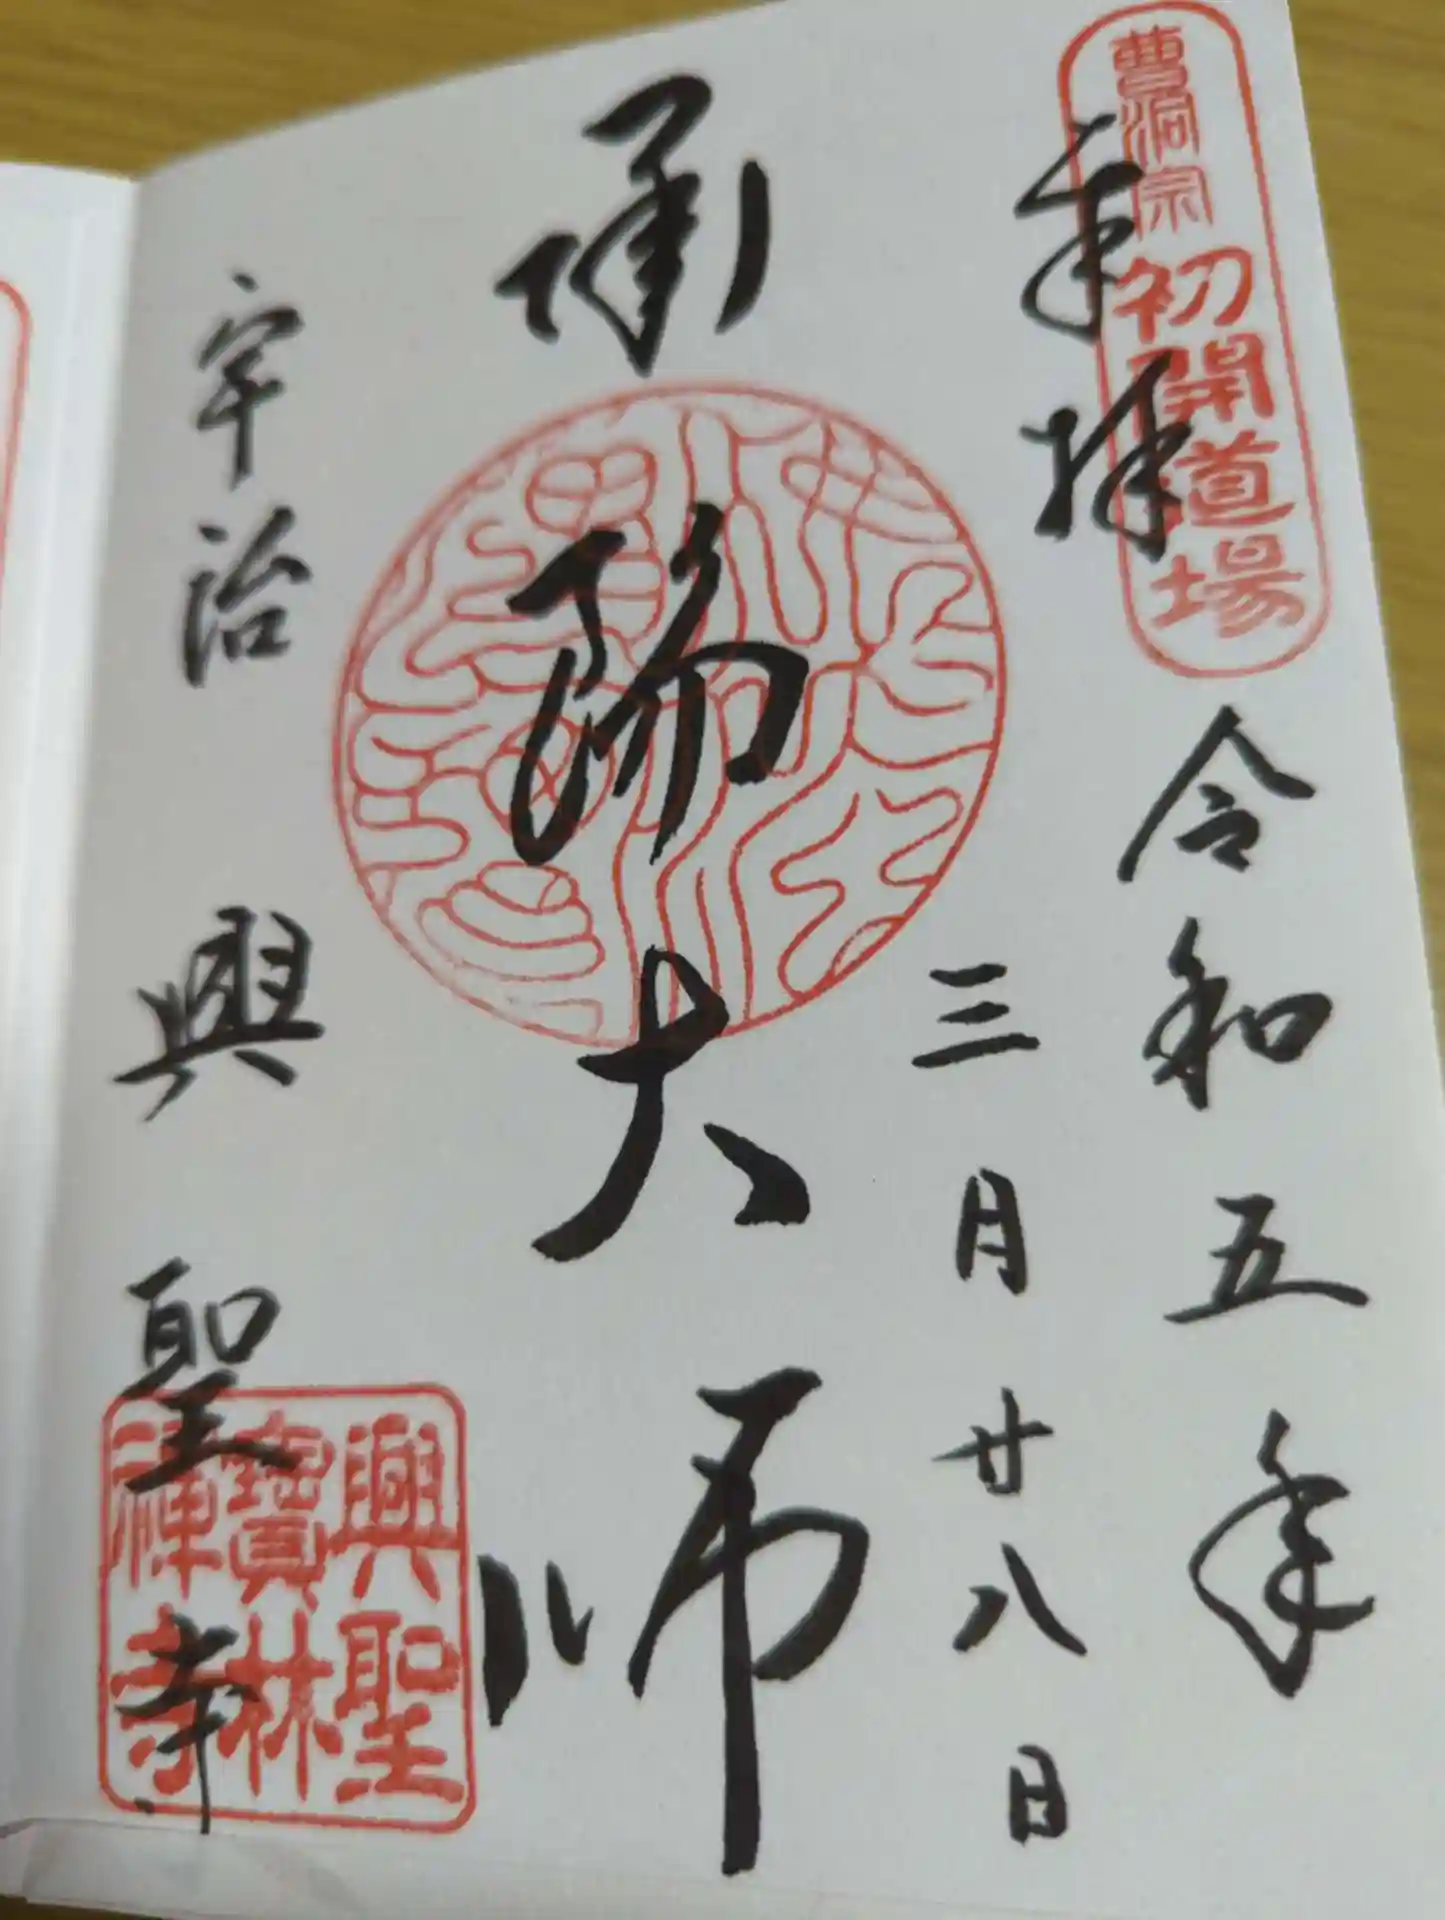 曹洞宗 初開道場
奉拝
令和五年
三月廿八日
承陽大師
宇治 興聖寺
興聖
寶林
禅寺